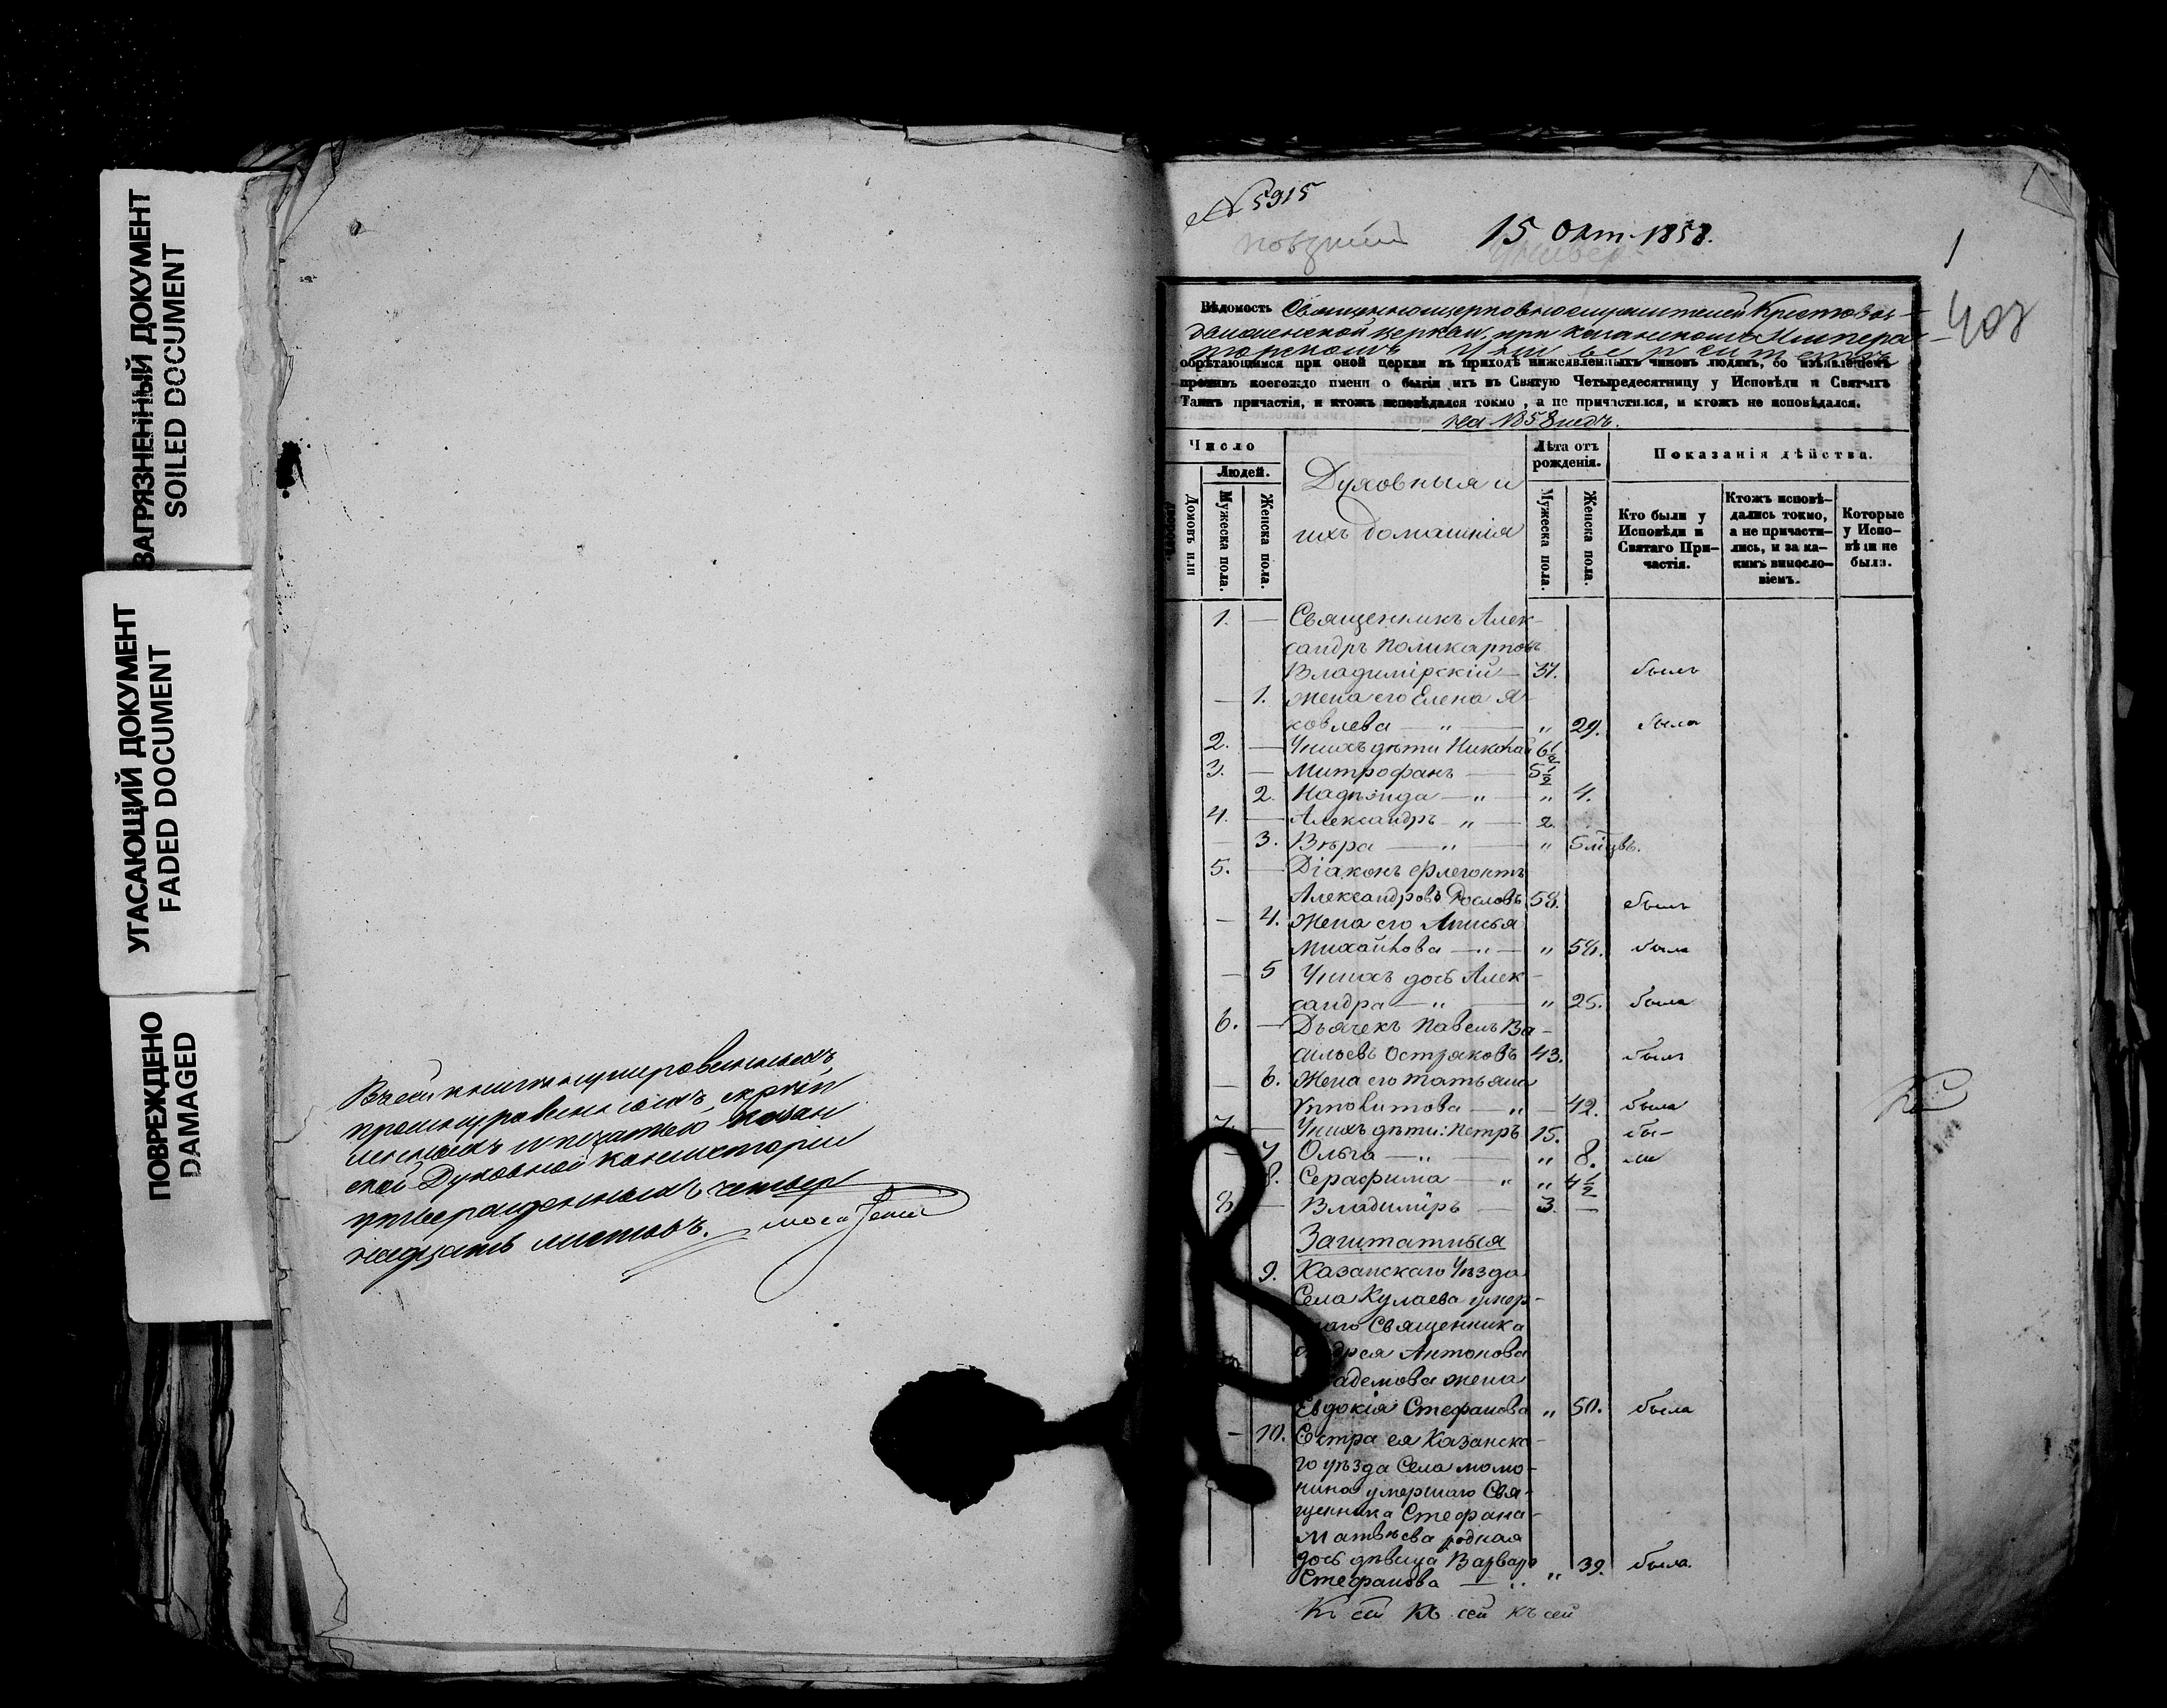 ЗАГРЯЗНЕННЫЙ ДОКУМЕНТ
SOILED DOCUMENT
УГАСАЮЩИЙ ДОКУМЕНТ
FADED DOCUMENT
ПОВРЕЖДЕНО
DAMAGED
ской Духовной консисторіи
утвержденныхъ четвер
надцать листовъ.
№ 5915
15 Окт. 1858.
1
Вѣдомость Священноцерковнослужителей Крестовоз-
движенской церкви, при Казанскомъ Импера-
торскомъ Университетѣ
обрѣтающимся при оной церкви въ приходѣ нижеявленныхъ чиновъ людямъ, со изъявленіемъ
противъ коегождо имени о бытіи ихъ въ Святую Четыредесятницу у Исповѣди и Святыхъ
Таинъ причастія, и ктожъ исповѣдался токмо, а не причастился, и ктожъ не исповѣдался.
на 1858 годъ.
Число
Людей.
Домовъ или
Мужеска пола.
Женска пола.
Духовныя и
ихъ домашнія
Лѣта отъ
рожденія.
Мужеска пола.
Женска пола.
Показанія дѣйства.
Кто были у
Исповѣди и
Святаго При-
частія.
Ктожъ исповѣ-
дались токмо,
а не причасти-
лись, и за ка-
кимъ винословіемъ.
Которые
у Испо-
вѣди не
были.
1. — Священникъ Алек-
сандръ Поликарповъ
Владимірскій — 37. былъ
— 1. Жена его Елена Я-
ковлева — " — " 29. была
2. — У нихъ дѣти Николай 6½
3. — Митрофанъ — 5½
2. Надежда — " — " 4.
4. — Александръ " — 2.
— 3. Вѣра — " — " 5 мѣсцвъ.
5. — Діаконъ Флегонтъ
Александровъ 58. былъ
— 4. Жена его Анисья
Михайлова — " — " 54. была
— 5 У нихъ дочь Алек-
сандра — " — " 25. была
6. — Дьячекъ Павелъ Ва-
сильевъ Остряковъ 43. былъ
— 6. Жена его Татьяна
— " — 42. была
7. — У нихъ дѣти: Петръ 15. бы-
— 7 Ольга — " — " 8. ли
8. Серафима — " " 4½
8 — Владиміръ — 3. —
Заштатныя
9. Казанскаго Уѣзда
Села Кулаева умер-
шаго Священника
Андрея Антонова
жена
Евдокія Стефанова " 50. была
— 10. Сестра ея Казанска-
го уѣзда Села Момо-
нина умершаго Свя-
щенника Стефана
Матвѣева родная
дочь дѣвица Варвара
Стефанова — " " 39. была.
Къ сей Къ сей къ сей